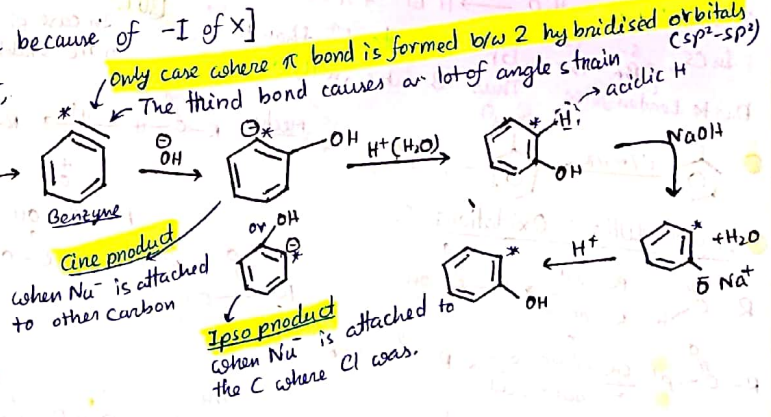 because of -I of X]
Only case where π bond is formed b/w 2 hybridised orbitals
(sp²-sp²)
The third bond causes a lot of angle strain
acidic H
*
⊖
OH
⊖*
OH
H⁺(H₂O)
*
H
OH
NaOH
Benzyne
Cine product
when Nu⁻ is attached
to other carbon
or
OH
⊖
*
Ipso product
when Nu⁻ is attached to
the C where Cl was.
*
OH
H⁺
*
+H₂O
O⁻ Na⁺